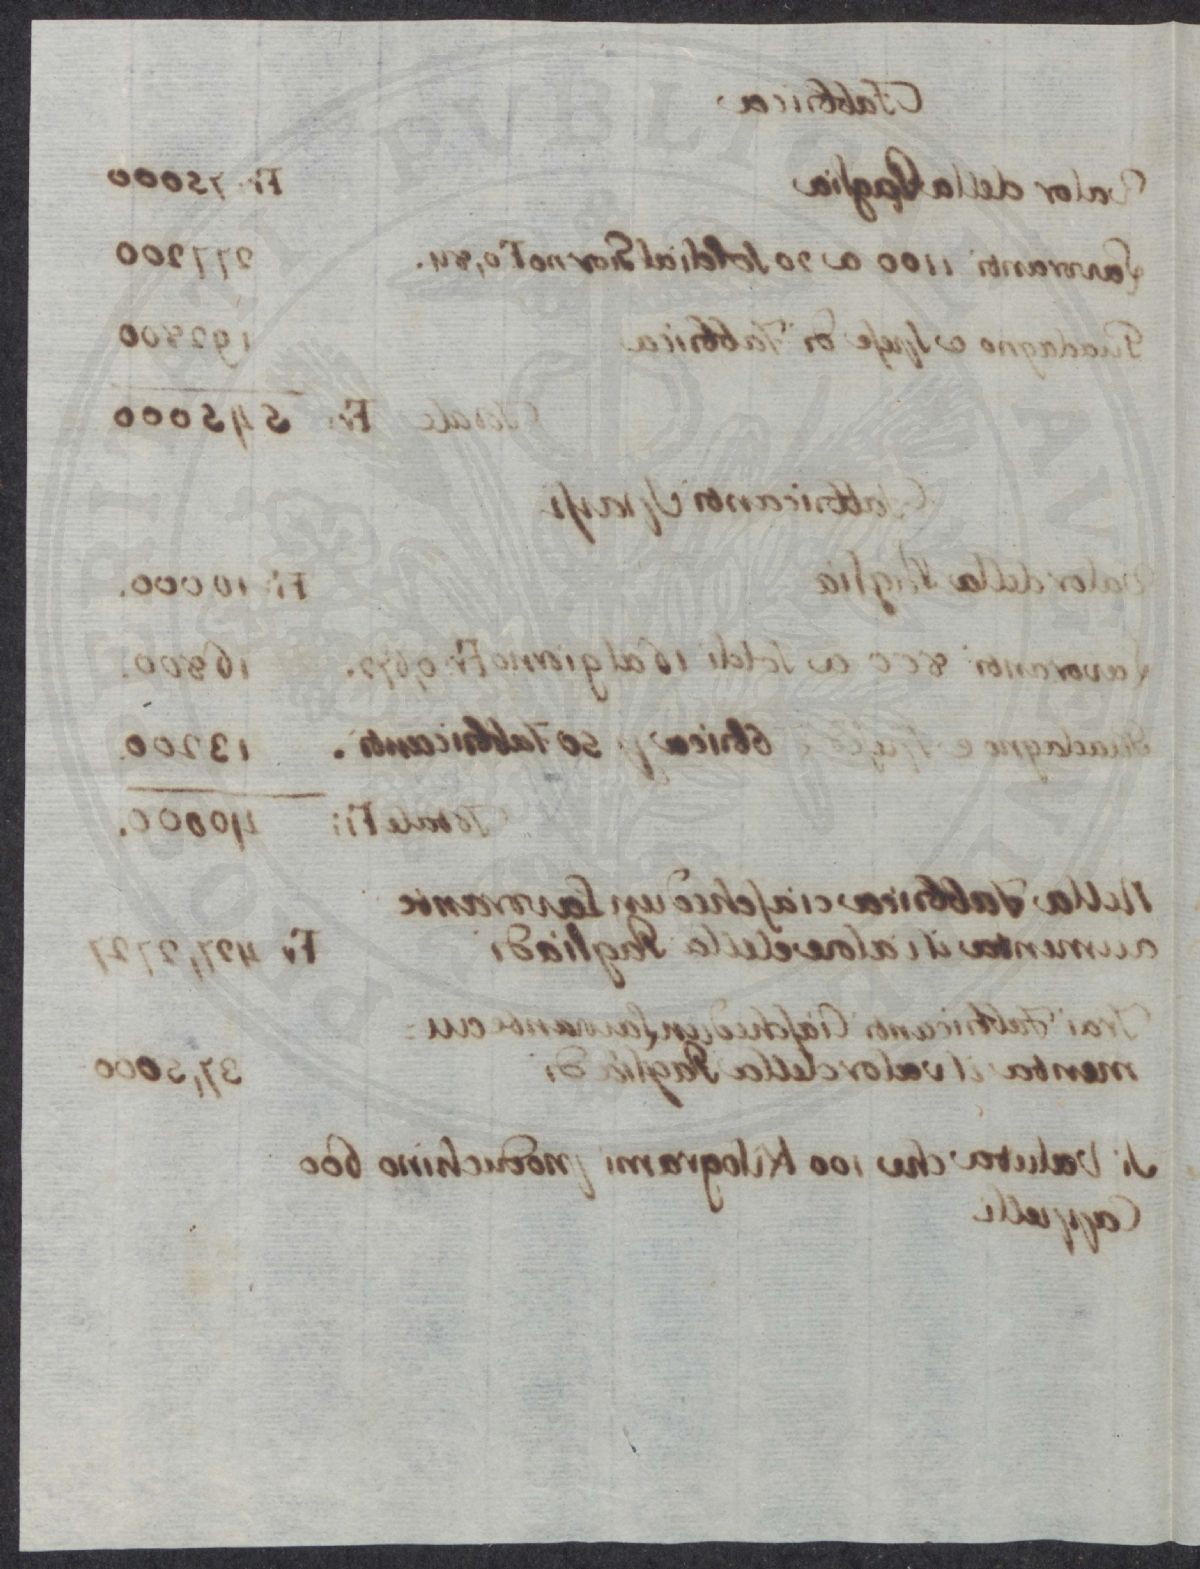 Fabbrica
Valor della Paglia Fr. 75000
Lavoranti 1100 a 20 soldi al Giorno Fr 0,84. 277200
Guadagno e spese di Fabbrica 192800
Totale Fr: 545000
Fabbricanti Sparsi
Valor della Paglia Fr: 10000.
Lavoranti 800 a soldi 16 al giorno Fr. 0,672. 16800.
Guadagno e spese bbrica p 50 Fabbricanti. 13200
Totale Fr: 40000.
Nella Fabbrica ciaschedun Lavorante
aumenta il valore della Paglia di Fr 427,2727
Trai Fabbricanti Ciaschedun Lavorante au=
menta il valor della Paglia di 37,5000
Si Valuta che 100 Kilogrami produchino 600
Cappelli
PVBLICAE VTILITATI